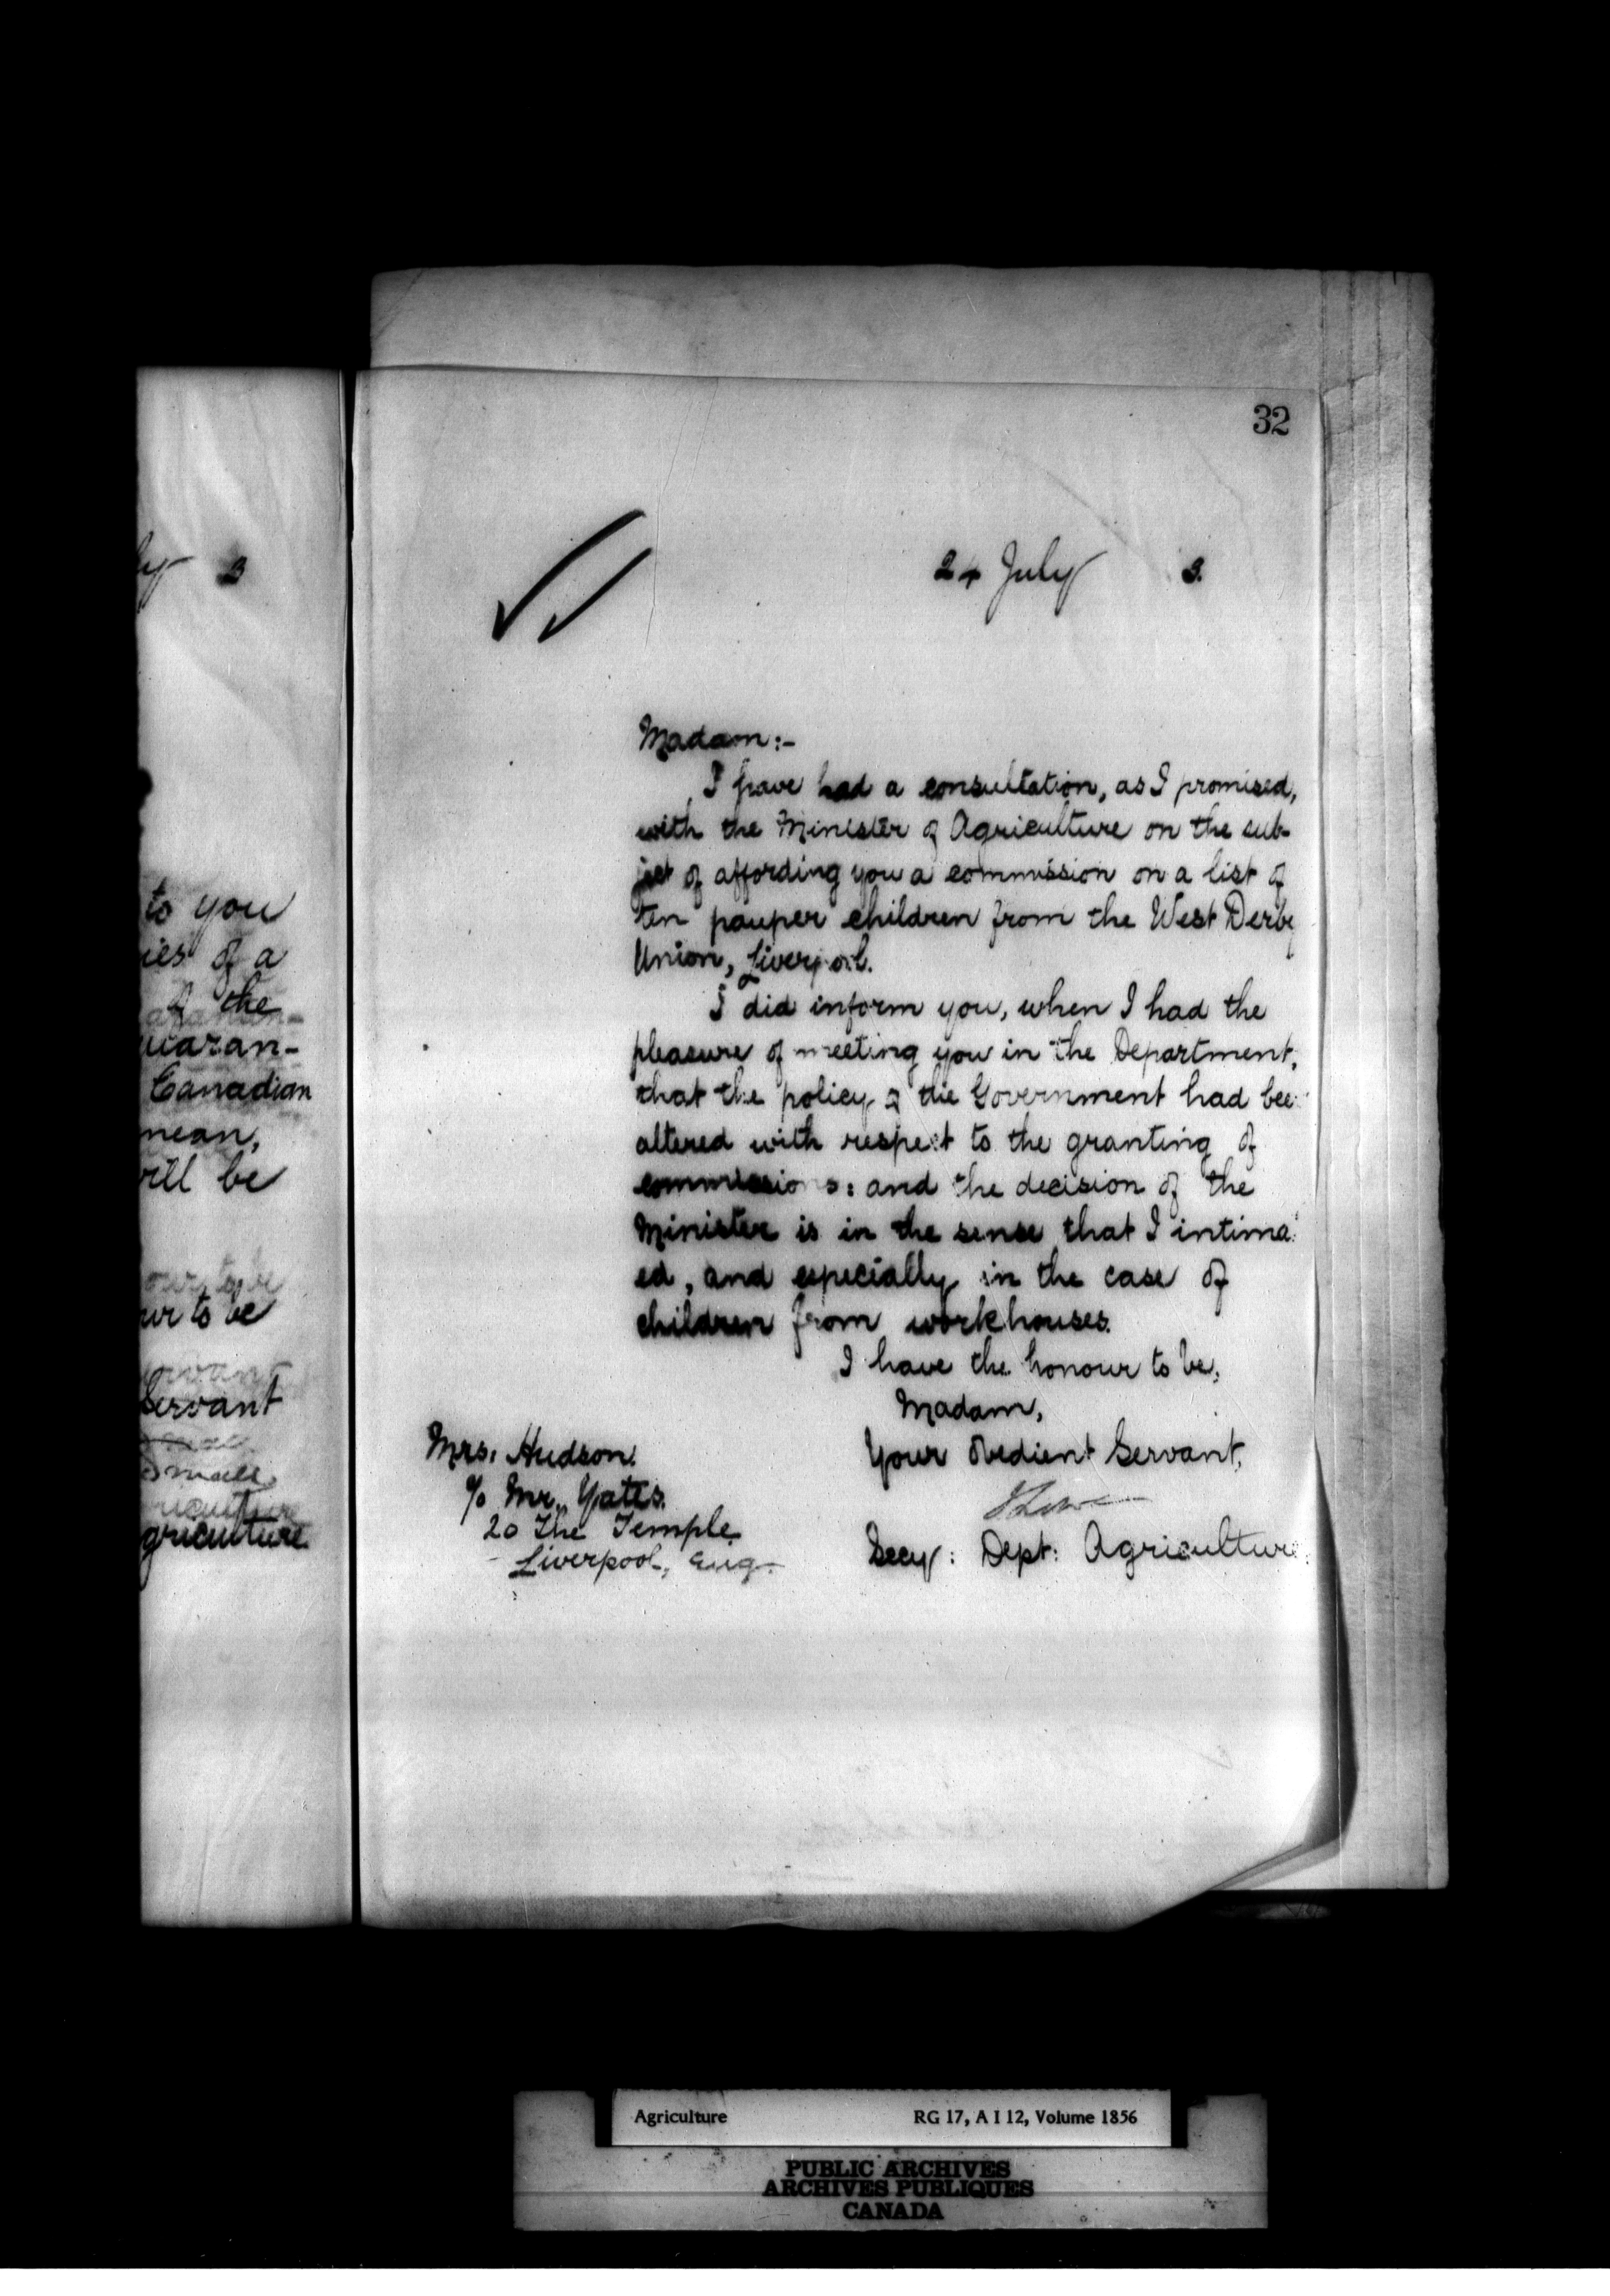 ly 3
to you
ies of a
of the
uaran-
Canadian
mean,
will be
our to be
ur to be
Servant
Small
griculture.
32
24 July 3.
Madam:-
I have had a consultation, as I promised,
with the Minister of Agriculture on the sub-
ject of affording you a commission on a list of
ten pauper children from the West Derby
Union, Liverpool.
I did inform you, when I had the
pleasure of meeting you in the Department,
that the policy of the Government had bee
altered with respect to the granting of
commissions: and the decision of the
Minister is in the sense that I intimat
ed, and especially in the case of
children from workhouses.
I have the honour to be,
Madam,
Your Obedient Servant,
J Lowe
Secy: Dept: Agriculture.
Mrs. Hudson.
c/o Mr. Yates.
20 The Temple
- Liverpool, Eng. -
Agriculture RG 17, A I 12, Volume 1856
PUBLIC ARCHIVES
ARCHIVES PUBLIQUES
CANADA